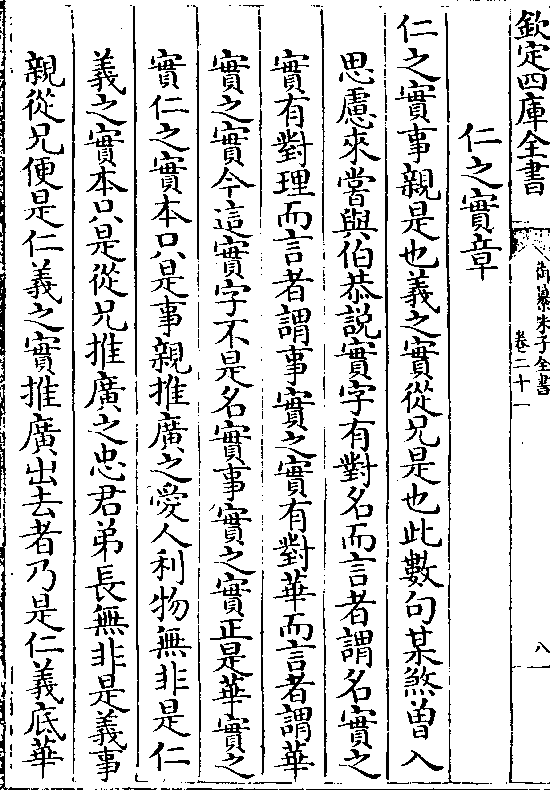 欽定四庫全書
御纂朱子全書
卷二十一
八
仁之實章
仁之實事親是也義之實從兄是也此數句某煞曾入
思慮來嘗與伯恭説實字有對名而言者謂名實之
實有對理而言者謂事實之實有對華而言者謂華
實之實今這實字不是名實事實之實正是華實之
實仁之實本只是事親推廣之愛人利物無非是仁
義之實本只是從兄推廣之忠君弟長無非是義事
親從兄便是仁義之實推廣出去者乃是仁義底華